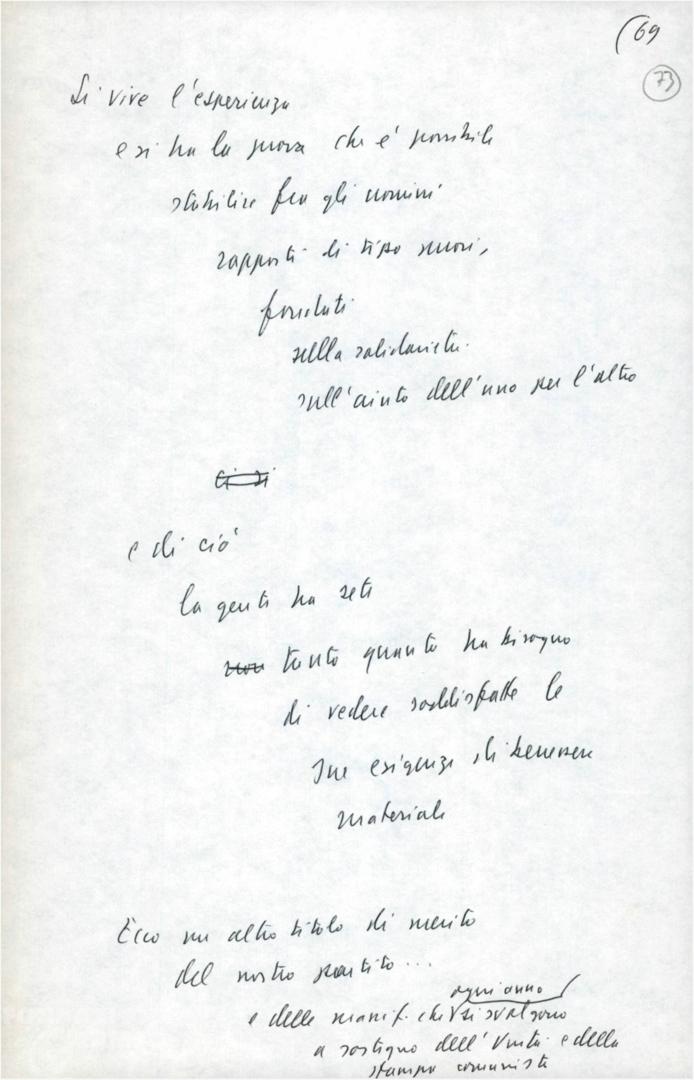 (69
73
Si vive l'esperienza
e si ha la prova che è possibile
stabilire fra gli uomini
rapporti di tipo nuovi,
fondati
sulla solidarietà
sull'aiuto dell'uno per l'altro
Ci si
e di ciò
la gente ha sete
non tanto quanto ha bisogno
di vedere soddisfatte le
sue esigenze di benessere
materiale
Ecco un altro titolo di merito
del nostro partito...
ogni anno
e delle manif. che si svolgono
a sostegno dell'Unità e della
stampa comunista